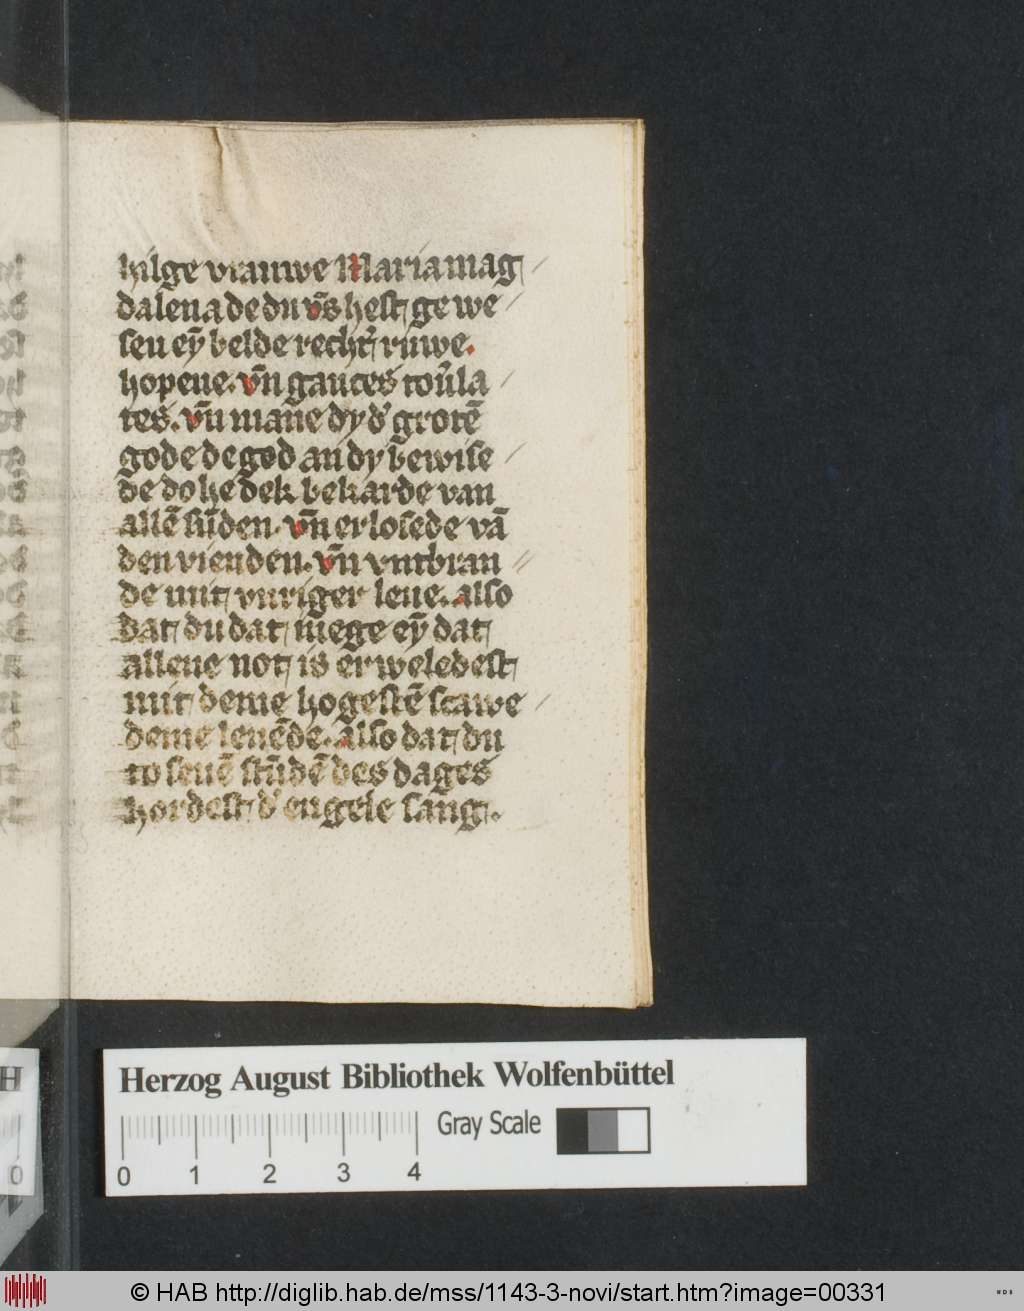 hilge vrauwe Maria mag
dalena de du vs̄ hest ge we
sen eȳ belde recht' ruwe.
hopene. vn̄ gantes
tes. vn̄ mane dy d' grotē
gode de god an dy bewise
de do he dek bekarde van
allē sūden. vn̄ erlosede vā
den vienden. vn̄ vntbran
de mit vuriger leue. also
dat du dat menge eȳ dat
allene not is erweledest
mit deme hogestē scawe
deme leuēde. also dat du
to seuē stūdē des dages
hordest d' engele sang.
Herzog August Bibliothek Wolfenbüttel
Gray Scale
0 1 2 3 4
© HAB http://diglib.hab.de/mss/1143-3-novi/start.htm?image=00331